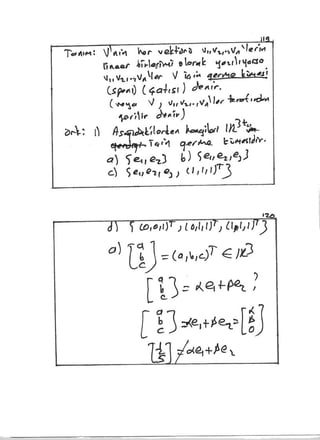 119
Tanım: V'nin her vektörü v₁,v₂,...,vₙ'lerin
lineer birleşimi olarak yazılıyorsa
v₁,v₂,...,vₙ'ler V için germe kümesi
(spanı) (çatısı) denir.
(veya V, v₁,v₂,...,vₙ'ler tarafından
gerilir denir)
örk: 1) Aşağıdakilerden hangileri ℝ³
için germe kümesidir.
a) {e₁,e₂} b) {e₁,e₂,e₃}
c) {e₁,e₂,e₃,(1,1,1)ᵀ}
120
d) {(0,0,1)ᵀ,(0,1,1)ᵀ,(1,1,1)ᵀ}
a) [a b c] = (a,b,c)ᵀ ∈ ℝ³
[a b c] = αe₁+βe₂ ?
[a b c] = αe₁+βe₂ = [α β 0]
≠ αe₁+βe₂